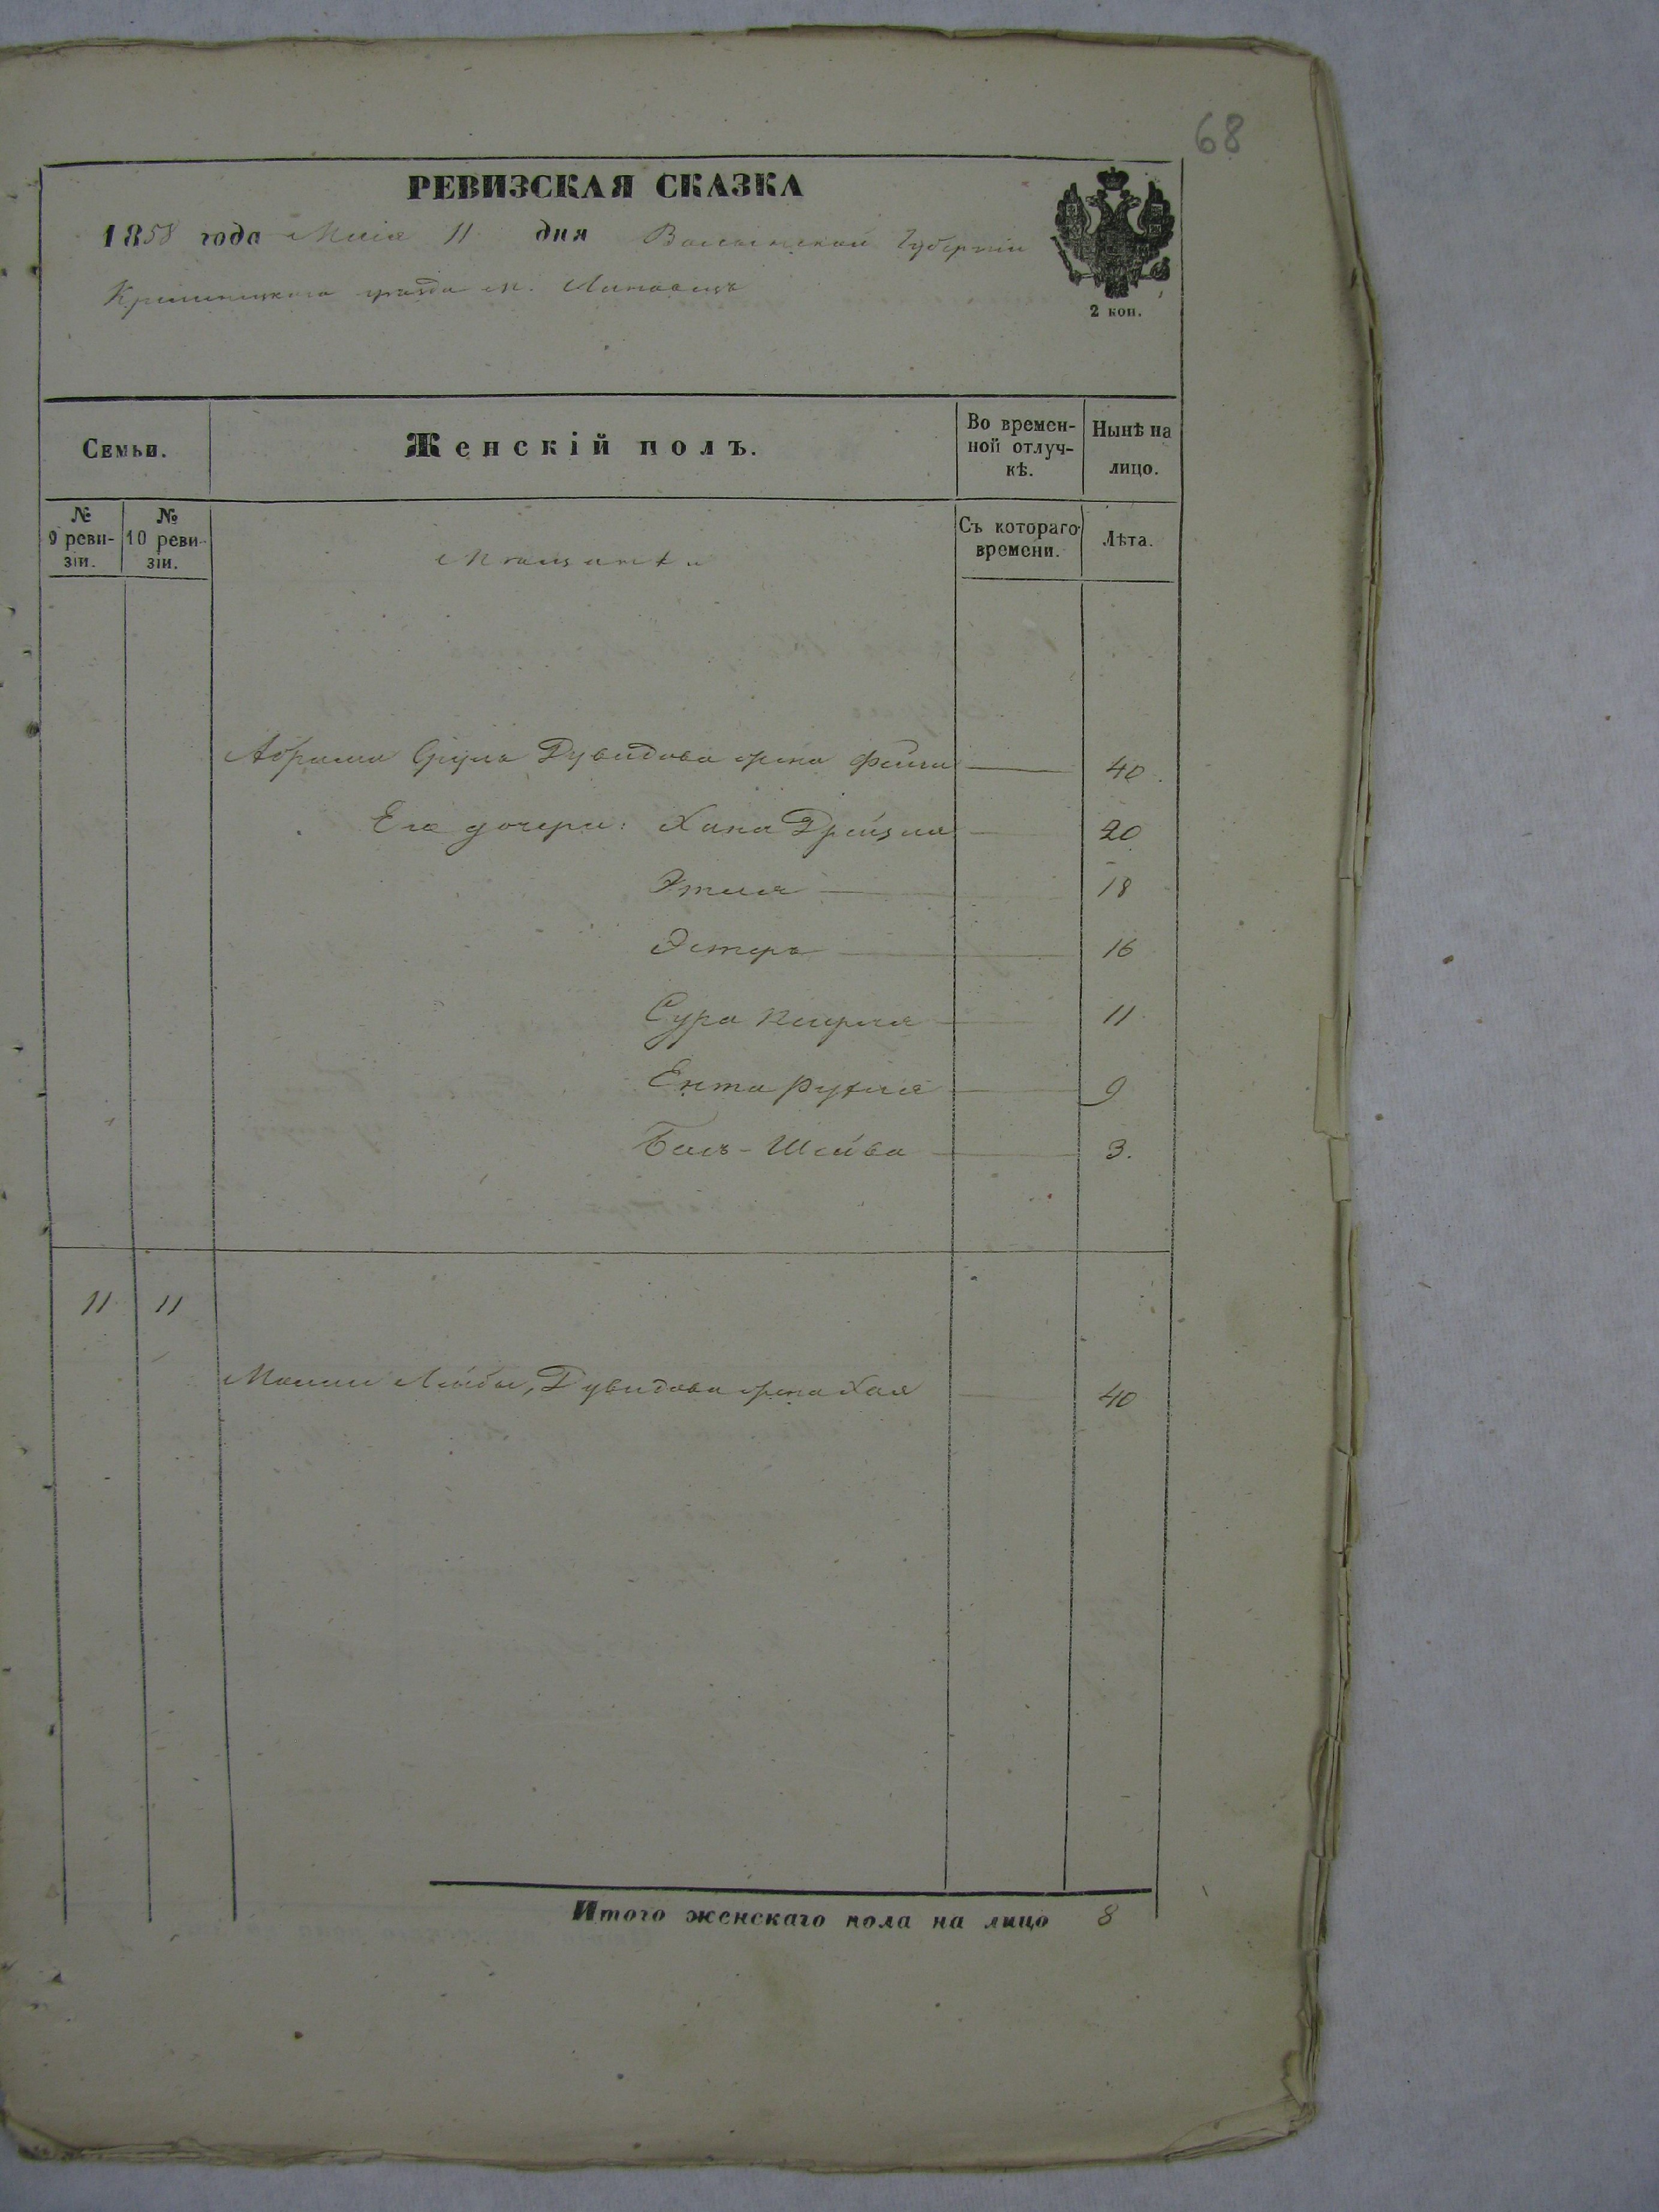 68
РЕВИЗСКАЯ СКАЗКА
1858 года Маія 11 дня Волынской Губерніи
Кременецкого уезда м.
2 коп.
Семьи.
Женскій полъ.
Во времен-
ной отлуч-
кѣ.
Нынѣ на
лицо.
№
9 реви-
зіи.
№
10 реви-
зіи.
Съ котораго
времени.
Лѣта.
Абрама Сруля Дувидова жена Фейга 40
Его дочери: Хана Дрейзля 20
Этля 18
Эстера 16
Сура 11
Ента Рухля 9
Бась-Шейва 3.
11 11
Мошки Лейбы, Дувидова жена Хая 40
Итого женскаго пола на лицо 8